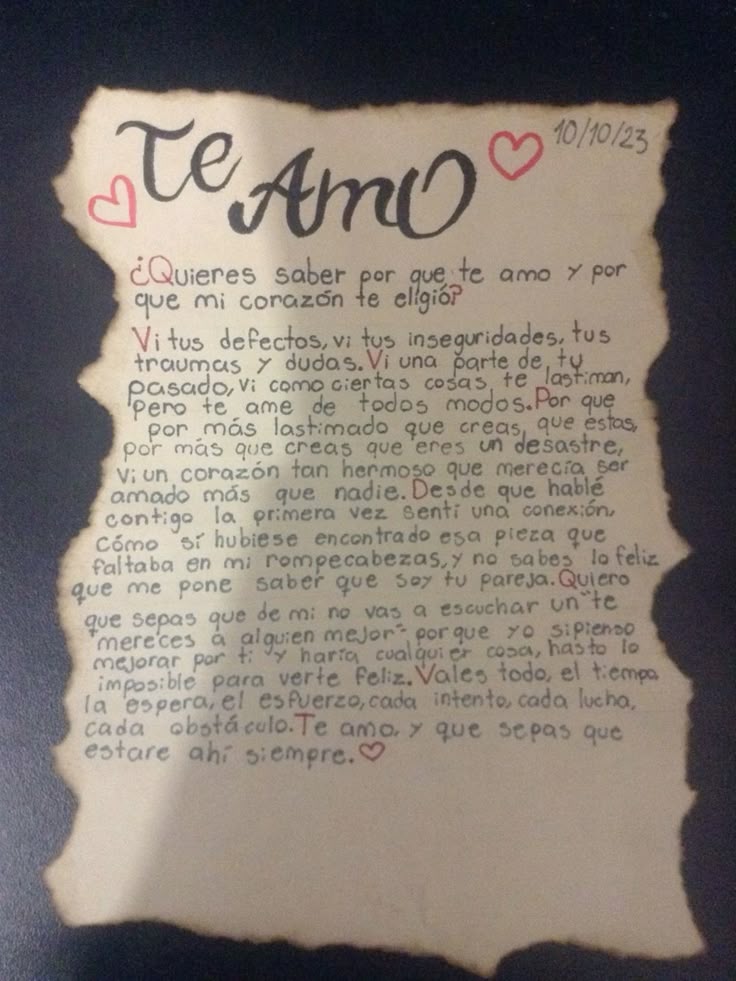 Te Amo
10/10/23
¿Quieres saber por que te amo y por
que mi corazón te eligió?
Vi tus defectos, vi tus inseguridades, tus
traumas y dudas. Vi una parte de tu
pasado, vi como ciertas cosas te lastiman,
pero te ame de todos modos. Por que
por más lastimado que creas que estas,
por más que creas que eres un desastre,
vi un corazón tan hermoso que merecía ser
amado más que nadie. Desde que hablé
contigo la primera vez sentí una conexión,
Cómo sí hubiese encontrado esa pieza que
faltaba en mi rompecabezas, y no sabes lo feliz
que me pone saber que soy tu pareja. Quiero
que sepas que de mi no vas a escuchar un "te
mereces a alguien mejor" porque yo si pienso
mejorar por ti y haría cualquier cosa, hasta lo
imposible para verte feliz. Vales todo, el tiempo,
la espera, el esfuerzo, cada intento, cada lucha,
cada obstáculo. Te amo, y que sepas que
estare ahí siempre.